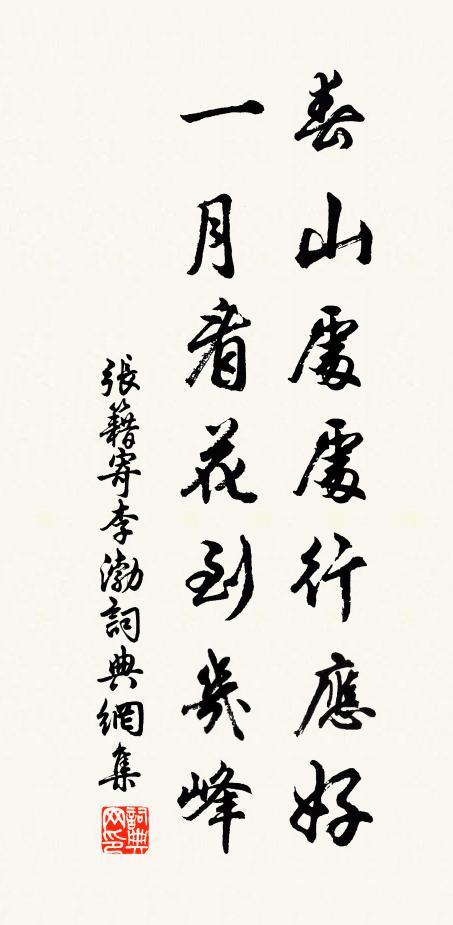 春山處處行應好
一月看花到幾峰
張籍寄李渤詞典網集
詞典
网印